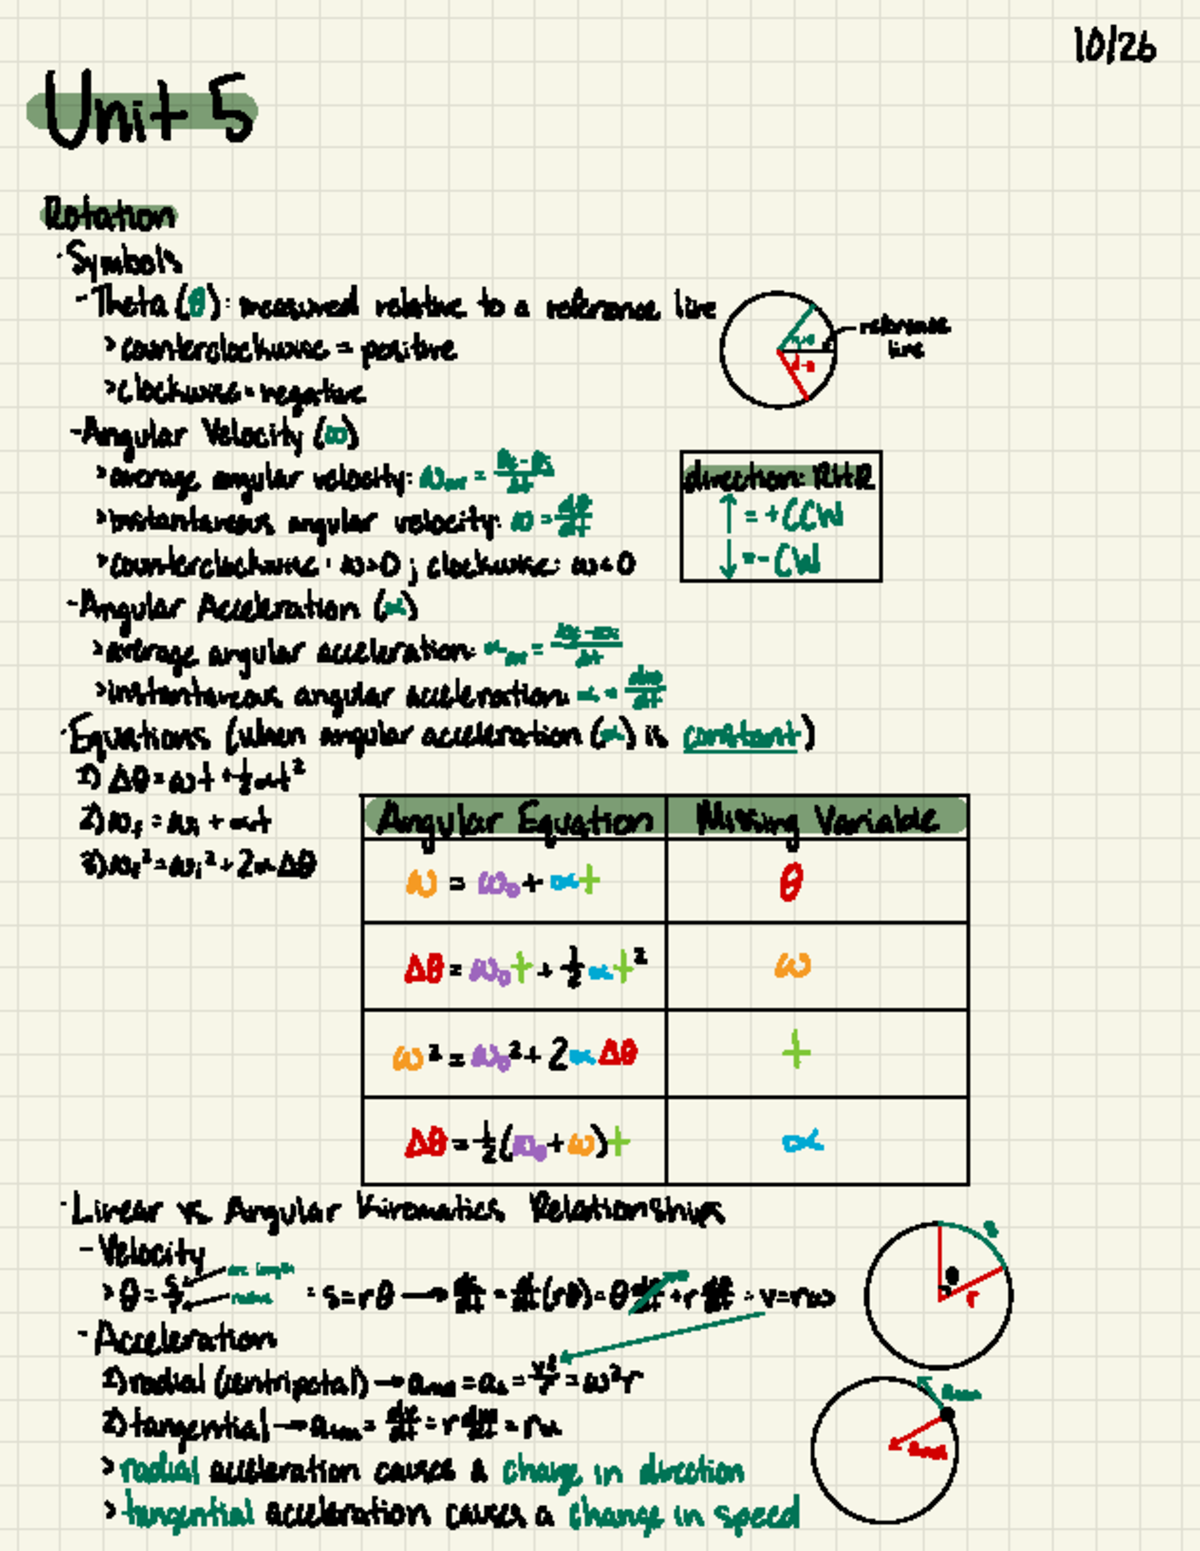 10/26
Unit 5
Rotation
·Symbols
-Theta (θ): measured relative to a reference line
>counterclockwise = positive
>clockwise = negative
reference line
-Angular Velocity (ω)
>average angular velocity: ω
>instantaneous angular velocity: ω = dθ/dt
>counterclockwise: ω>0; clockwise: ω<0
direction: RHR
↑ = + CCW
↓ = - CW
-Angular Acceleration (α)
>average angular acceleration: α
>instantaneous angular acceleration: α = dω/dt
·Equations (when angular acceleration (α) is constant)
1) Δθ = ωt + ½αt²
2) ωf = ωi + αt
3) ωf² = ωi² + 2αΔθ
Angular Equation | Missing Variable
ω = ω₀ + αt | θ
Δθ = ω₀t + ½αt² | ω
ω² = ω₀² + 2αΔθ | t
Δθ = ½(ω₀ + ω)t | α
·Linear vs Angular Kinematics Relationships
-Velocity
>θ = s/r arc length radius
·s = rθ → ds/dt = d/dt(rθ) = θ dr/dt + r dθ/dt = v = rω
s
θ
r
-Acceleration
1) radial (centripetal) → = v²/r = ω²r
2) tangential → = dv/dt = r dω/dt = rα
>radial acceleration causes a change in direction
>tangential acceleration causes a change in speed